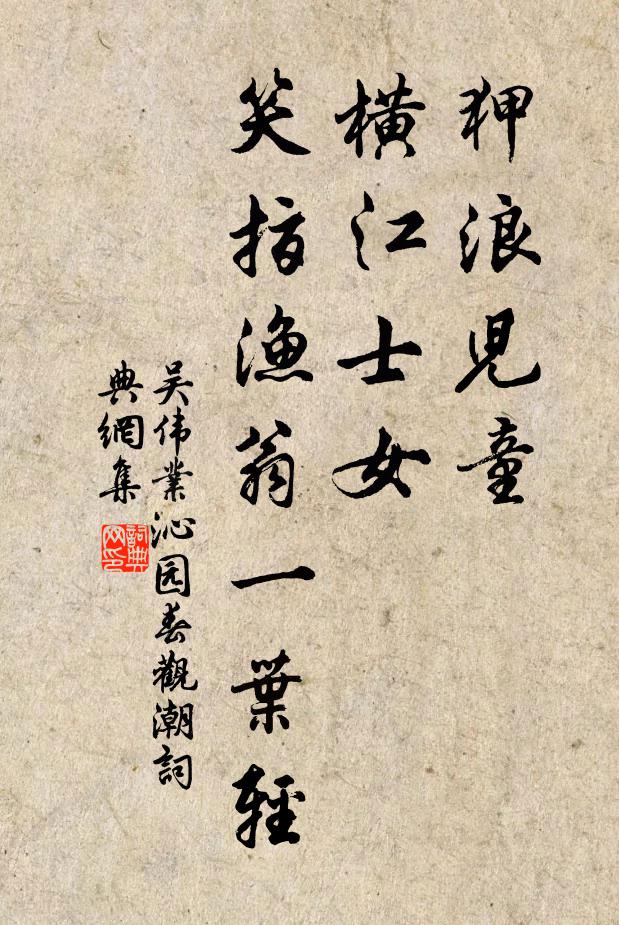 狎浪児童
横江士女
笑指渔翁一葉轻
吴伟業沁园春觀潮詞
典網集
詞典
网印